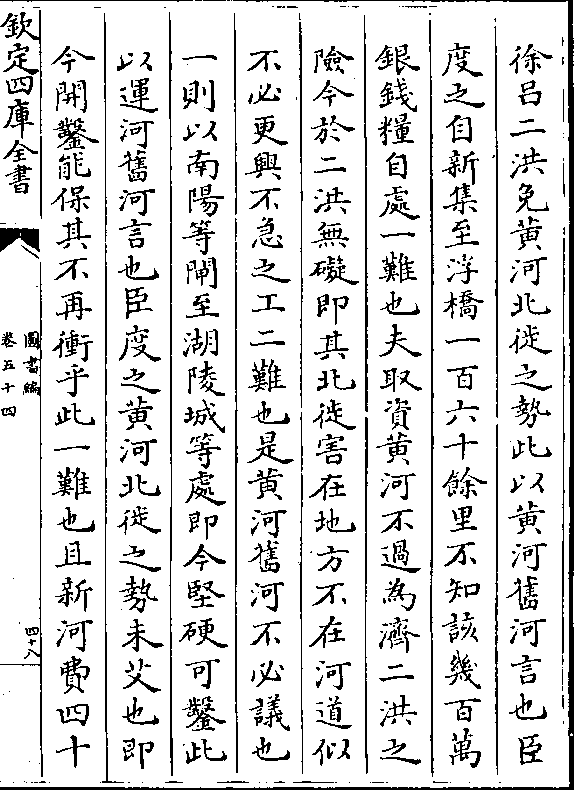 徐吕二洪免黄河北徙之勢此以黄河舊河言也臣
度之自新集至浮橋一百六十餘里不知該幾百萬
銀錢糧自處一難也夫取資黄河不過為濟二洪之
險今於二洪無礙即其北徙害在地方不在河道似
不必更興不急之工二難也是黄河舊河不必議也
一則以南陽等閘至湖陵城等處即今堅硬可鑿此
以運河舊河言也臣度之黄河北徙之勢未艾也即
今開鑿能保其不再衝乎此一難也且新河費四十
欽定四庫全書
圖書編
卷五十四
四十八